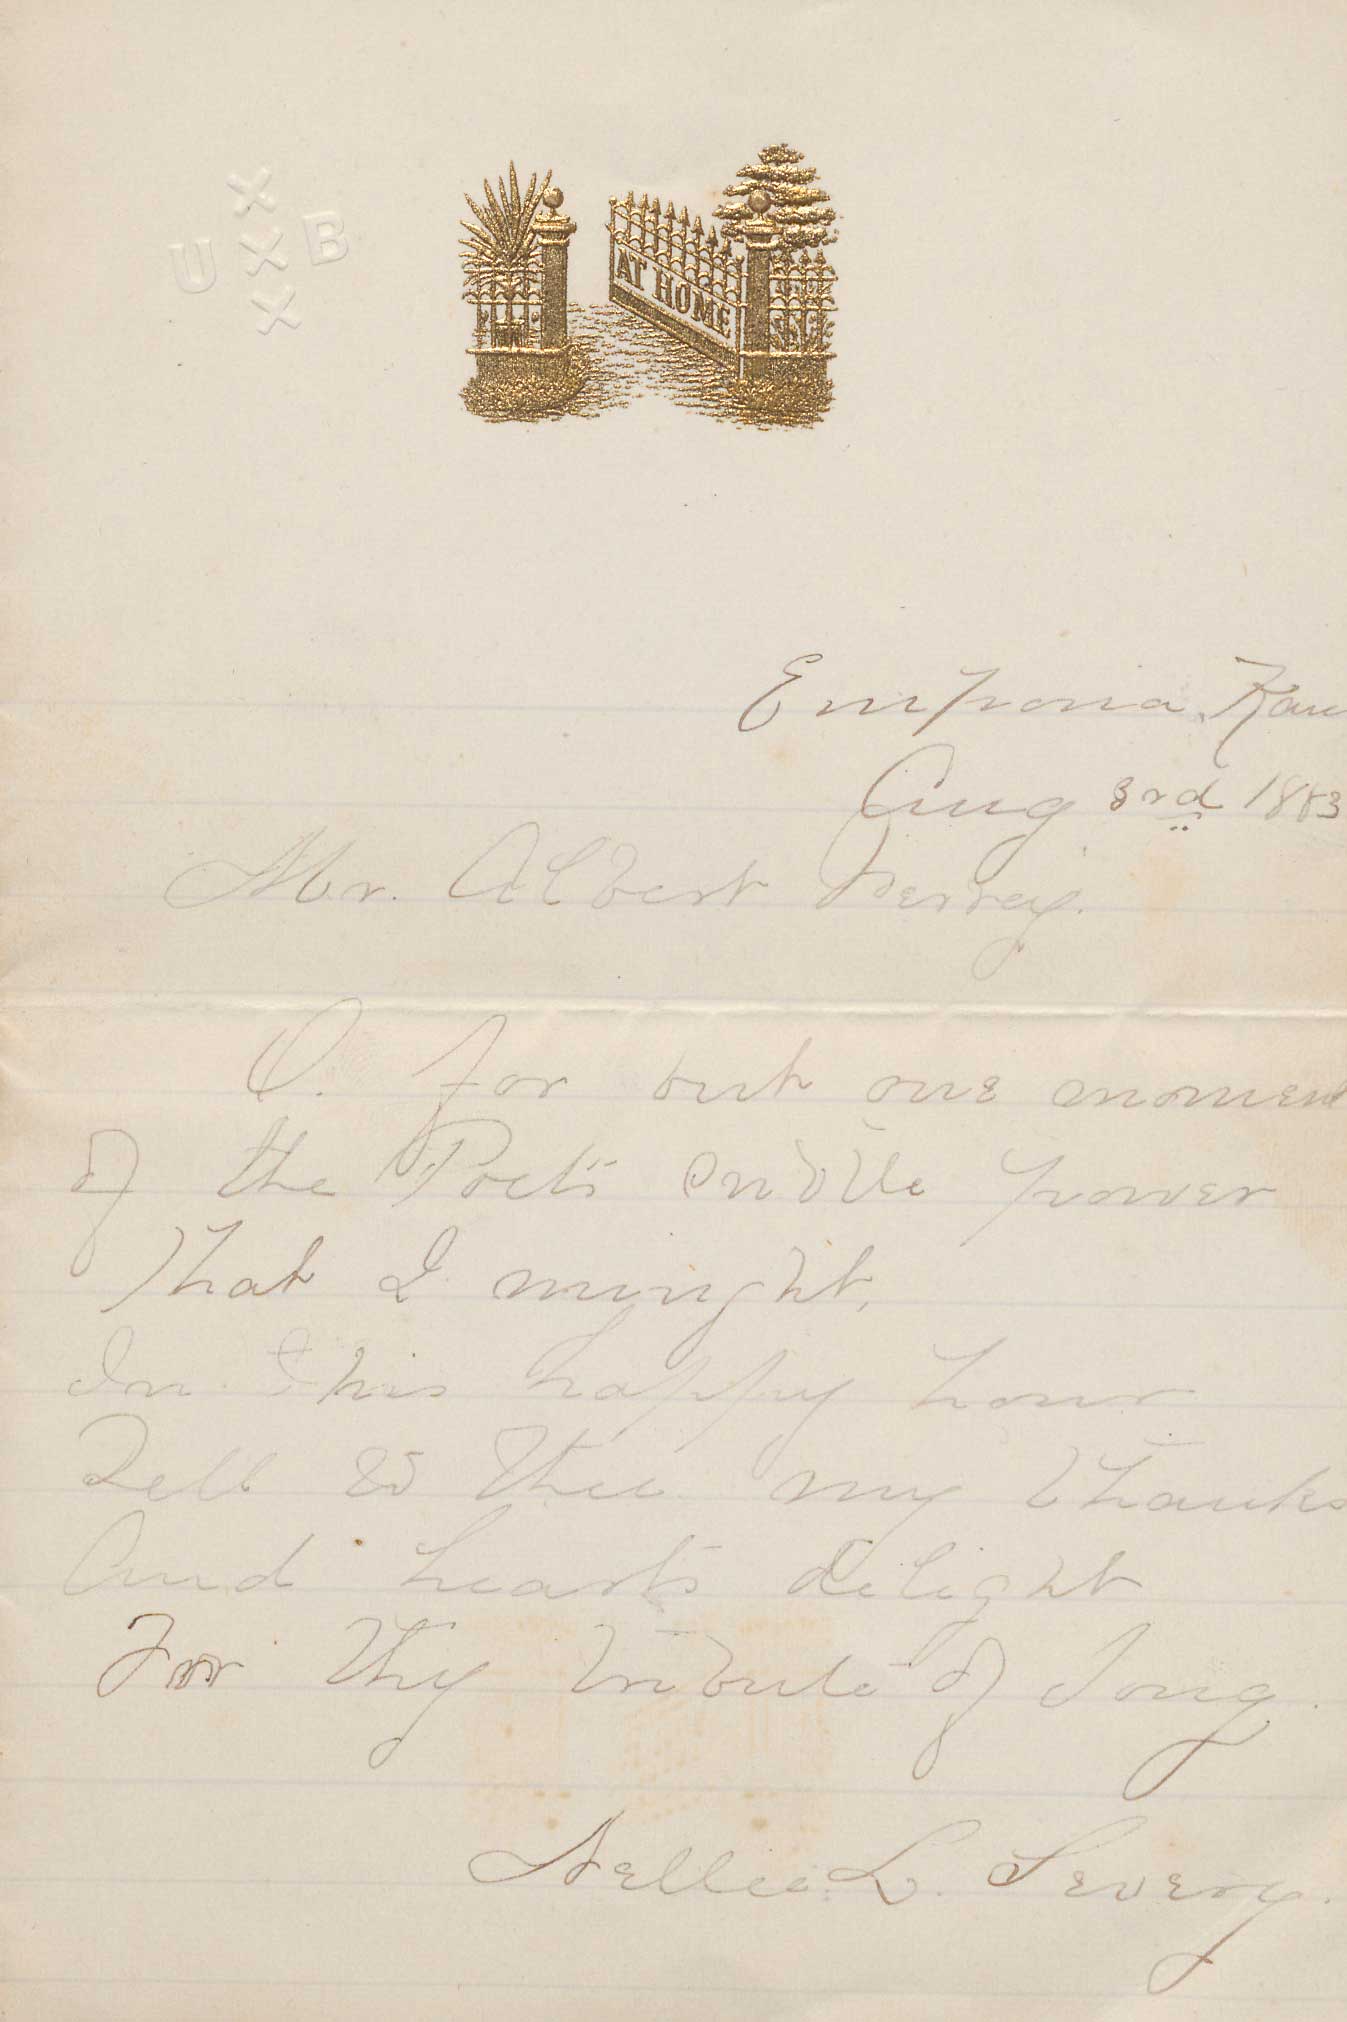 X
U X B
X
AT HOME
Emporia, Kan
Aug 3rd 1883
Mr. Albert Perrey.
O. for but one moment
of the Poet's subtle power
That I might,
In this happy hour
Tell to thee my thanks
And heart's delight
For thy tribute of song.
Nellie L. Severy.